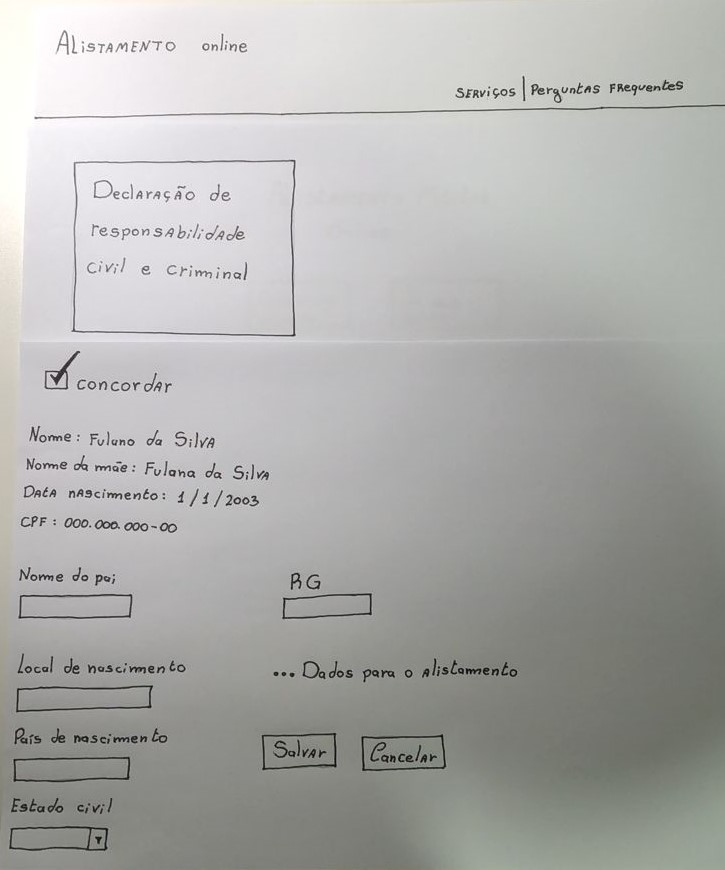 Alistamento online
Serviços | Perguntas Frequentes
Declaração de
responsabilidade
civil e criminal
concordar
Nome: Fulano da Silva
Nome da mãe: Fulana da Silva
Data nascimento: 1/1/2003
CPF: 000.000.000-00
Nome do pai
RG
Local de nascimento
... Dados para o alistamento
País de nascimento
Salvar
Cancelar
Estado civil